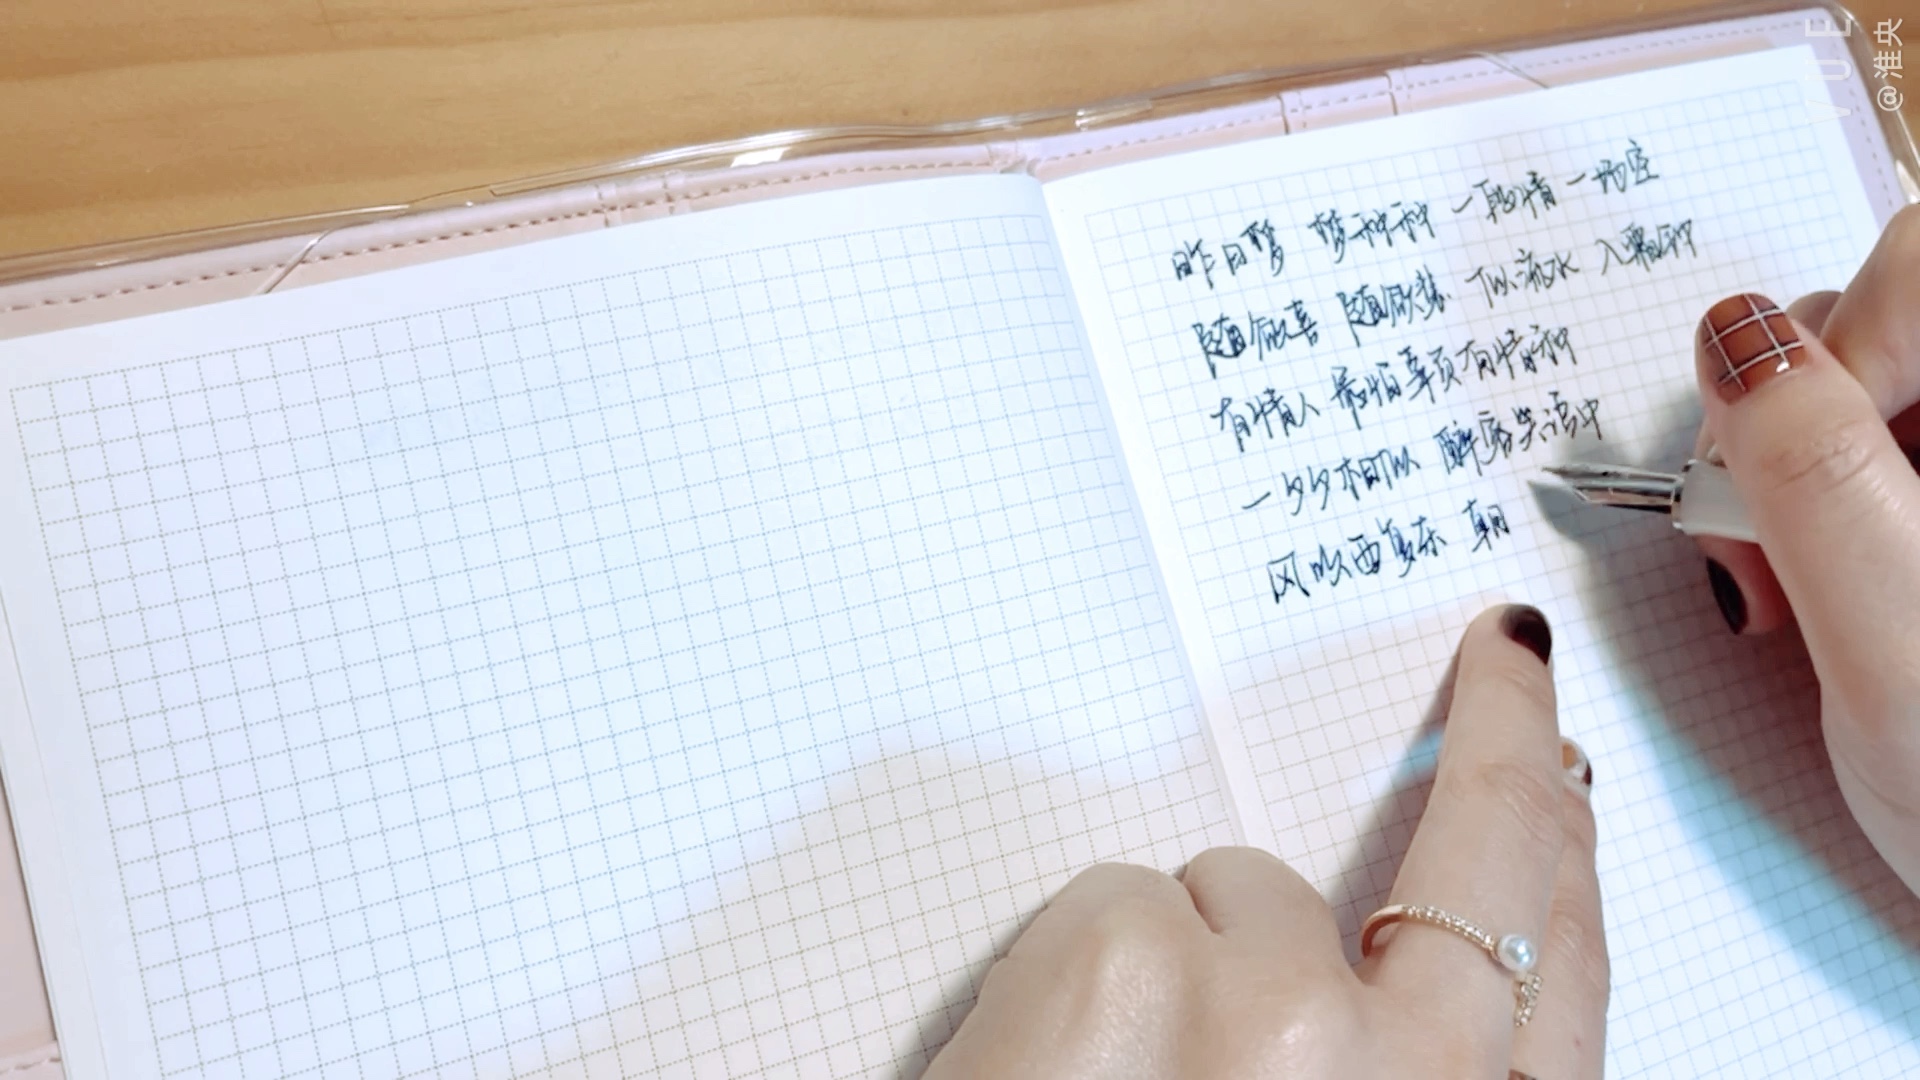 昨日梦 梦种种 一段情 一场空
随欣喜 随欣愁 似流水 入霜钟
有情人 最怕辜负有情种
一夕夕相似 醉客笑语中
风吹西复东 朝
VUE
@淮央